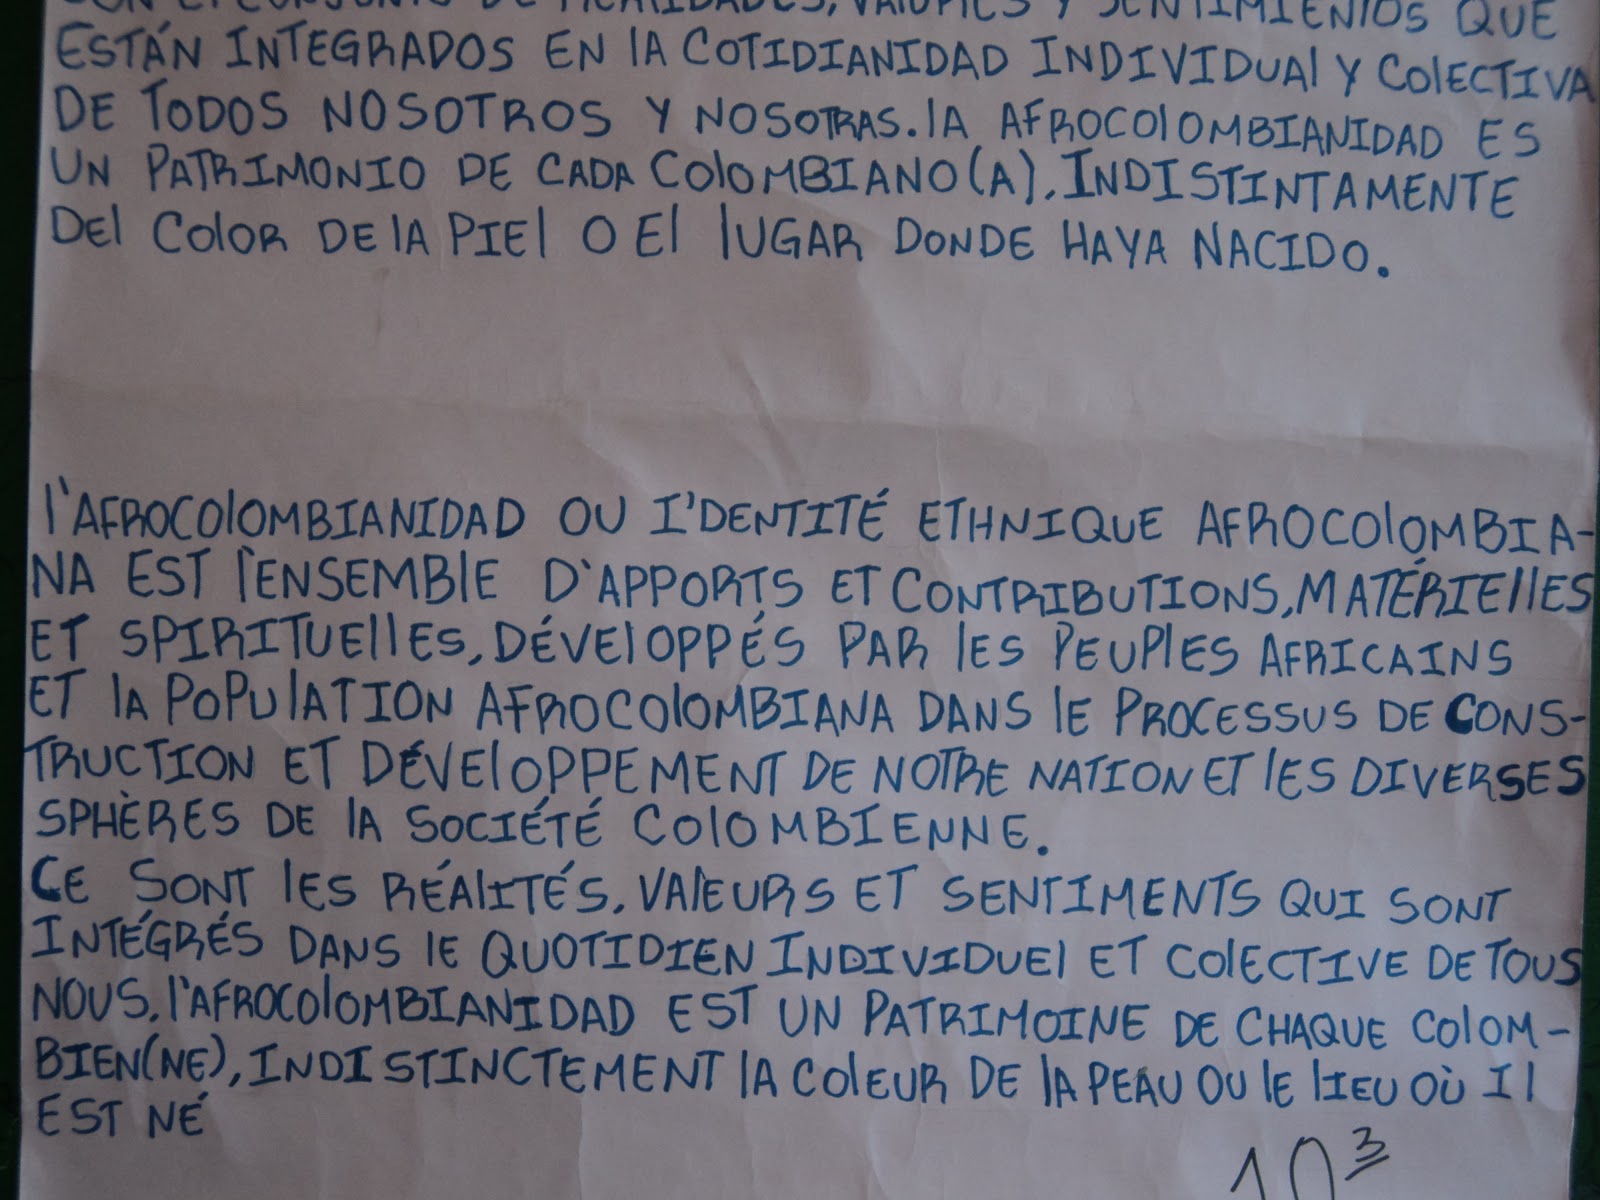 CON EL CONJUNTO DE REALIDADES, VALORES Y SENTIMIENTOS QUE
ESTÁN INTEGRADOS EN lA COTIDIANIDAD INDIVIDUAl Y COlECTIVA
DE TODOS NOSOTROS Y NOSOTRAS. lA AFROCOlOMBIANIDAD ES
UN PATRIMONIO DE CADA COlOMBIANO(A), INDISTINTAMENTE
DEl COlOR DE lA PIEl O El lUGAR DONDE HAYA NACIDO.
l'AFROCOlOMBIANIDAD OU I'DENTITÉ ETHNIQUE AFROCOlOMBIA-
NA EST l'ENSEMBlE D'APPORTS ET CONTRIBUTIONS, MATÉRIEllES
ET SPIRITUEllES, DÉVElOPPÉS PAR lES PEUPlES AFRICAINS
ET lA POPUlATION AFROCOlOMBIANA DANS lE PROCESSUS DE CONS-
TRUCTION ET DÉVElOPPEMENT DE NOTRE NATION ET lES DIVERSES
SPHÈRES DE lA SOCIÉTÉ COlOMBIENNE.
CE SONT lES RÉAlITÉS, VAlEURS ET SENTIMENTS QUI SONT
INTÉGRÉS DANS lE QUOTIDIEN INDIVIDUEl ET COlECTIVE DE TOUS
NOUS. l'AFROCOlOMBIANIDAD EST UN PATRIMOINE DE CHAQUE COlOM-
BIEN(NE), INDISTINCTEMENT lA COlEUR DE lA PEAU OU lE lIEU OÙ Il
EST NÉ
10³